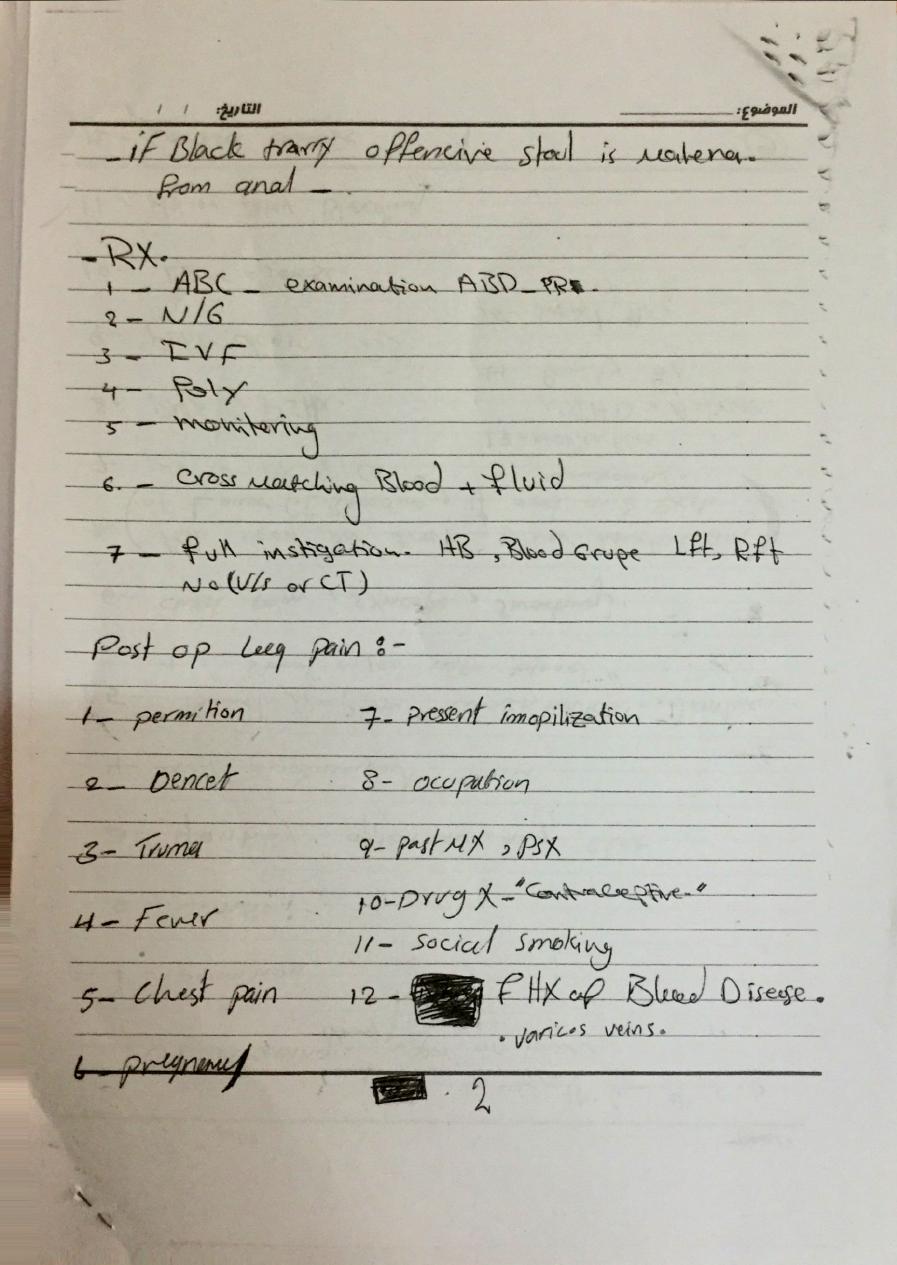 الموضوع: التاريخ: / /
- if Black trarry offencive stool is malena.
from anal -.
- RX.
1 - ABC - examination ABD - PR.
2 - N/G
3 - IVF
4 - Foly
5 - monitering
6. - Cross Matching Blood + fluid
7 - full instigation. HB, Blood Grupe Lft, Rft
No (U/s or CT)
Post op Leeg pain :-
1- permition
2- Dencet
3- Truma
4- Fever
5- Chest pain
6- pregnancy
7- pressent imopilization
8- ocupation
9- past MX, PSX
10- Drug X - "Contraceptive."
11- social smoking
12 - FHX of Blood Disease.
. varicos veins.
. 2